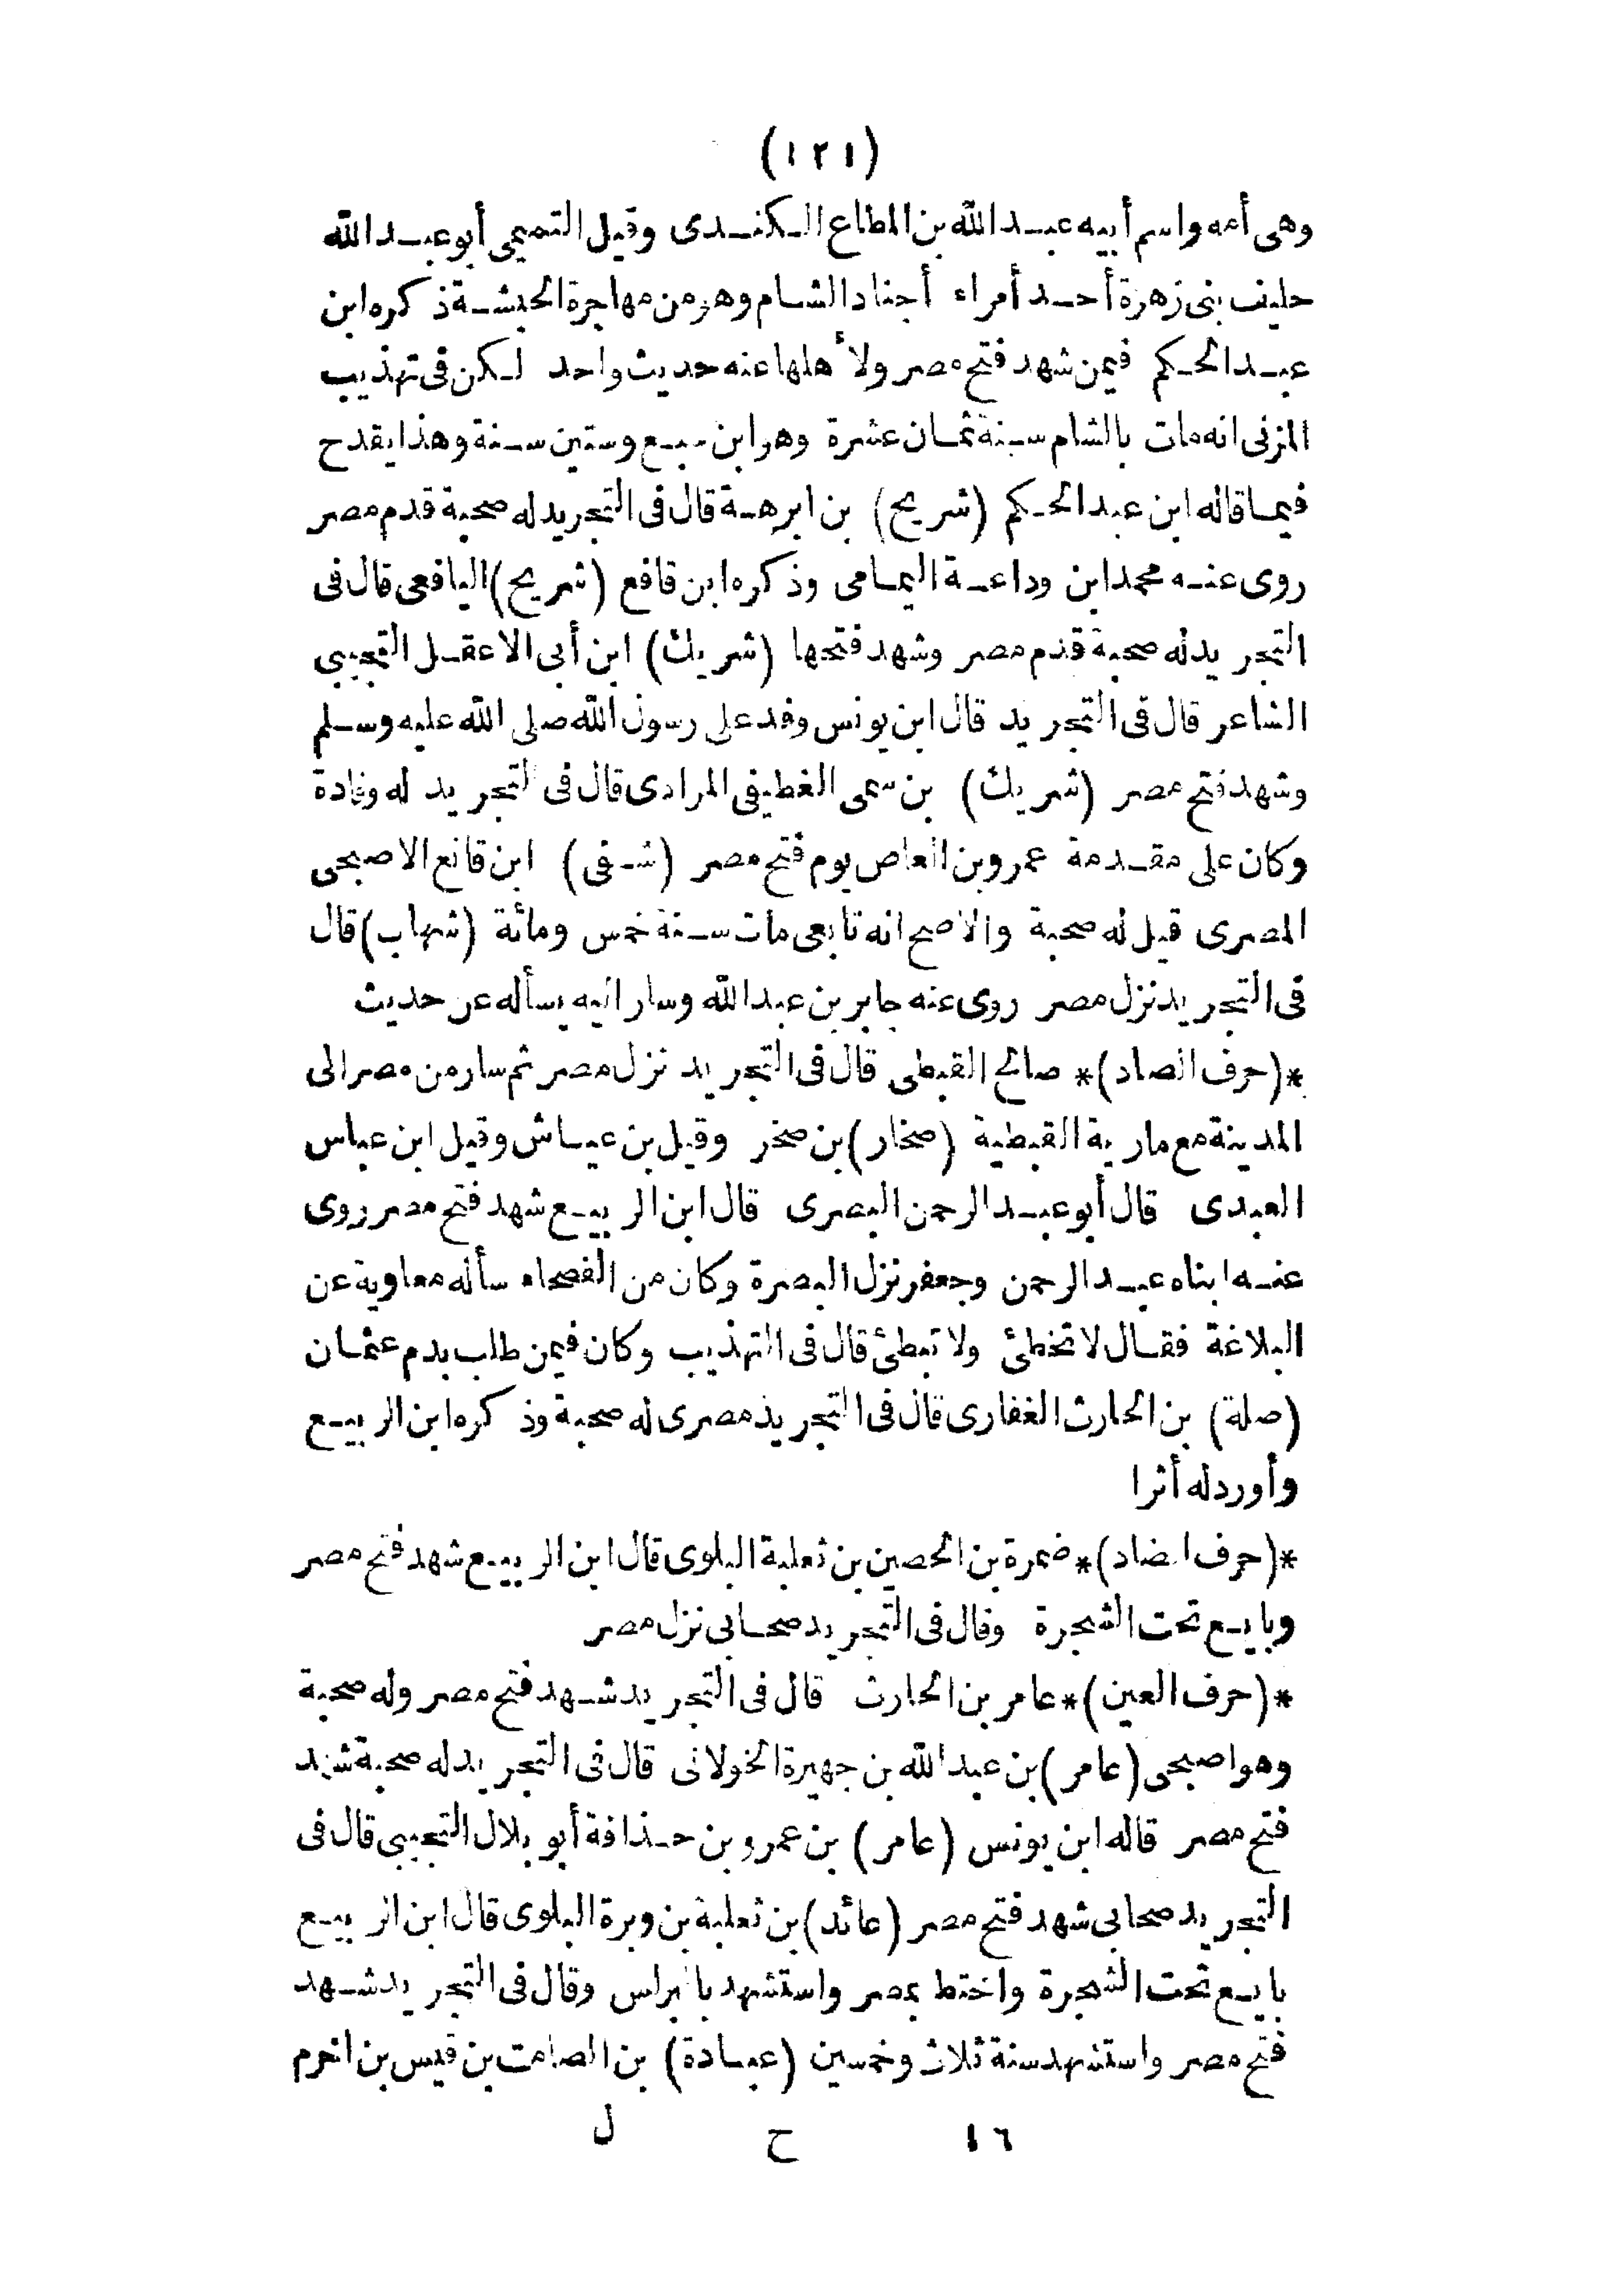 (١٢١)
وهى أمه واسم أبيه عبد الله بن المطاع الكندى وقيل التميمى أبو عبد الله
حليف بنى زهرة أحد أمراء أجناد الشام وهو من مهاجرة الحبشة ذكره ابن
عبد الحكم فيمن شهد فتح مصر ولأهلها عنه حديث واحد لكن فى تهذيب
المزنى انه مات بالشام سنة ثمان عشرة وهو ابن سبع وستين سنة وهذا يقدح
فيما قاله ابن عبد الحكم (شريح) بن ابرهة قال فى التجريد له صحبة قدم مصر
روى عنه محمد ابن وداعة اليمامى وذكره ابن قافع (شريح) اليافعى قال فى
التجريد له صحبة قدم مصر وشهد فتحها (شريك) ابن أبى الاعقل التجيبى
الشاعر قال فى التجريد قال ابن يونس وفد على رسول الله صلى الله عليه وسلم
وشهد فتح مصر (شريك) بن سمى الغطيفى المرادى قال فى التجريد له وفادة
وكان على مقدمة عمرو بن العاص يوم فتح مصر (شفى) ابن قانع الاصبحى
المصرى قيل له صحبة والاصح انه تابعى مات سنة خمس ومائة (شهاب) قال
فى التجريد نزل مصر روى عنه جابر بن عبد الله وسار اليه يسأله عن حديث
*(حرف الصاد)* صالح القبطى قال فى التجريد نزل مصر ثم سار من مصر الى
المدينة مع مارية القبطية (صخار) بن صخر وقيل بن عياش وقيل ابن عباس
العبدى قال أبو عبد الرحمن البصرى قال ابن الربيع شهد فتح مصر روى
عنه ابناه عبد الرحمن وجعفر نزل البصرة وكان من الفصحاء سأله معاوية عن
البلاغة فقال لا تخطئ ولا تبطئ قال فى التهذيب وكان فيمن طلب بدم عثمان
(صلة) بن الحارث الغفارى قال فى التجريد مصرى له صحبة وذكره ابن الربيع
وأورد له أثرا
*(حرف الضاد)* ضمرة بن الحصين بن ثعلبة البلوى قال ابن الربيع شهد فتح مصر
وبايع تحت الشجرة وقال فى التجريد صحابى نزل مصر
*(حرف العين)* عامر بن الحارث قال فى التجريد شهد فتح مصر وله صحبة
وهو اصبحى (عامر) بن عبد الله بن جهيرة الخولانى قال فى التجريد له صحبة شهد
فتح مصر قاله ابن يونس (عامر) بن عمرو بن حذافة أبو بلال التجيبى قال فى
التجريد صحابى شهد فتح مصر (عائد) بن ثعلبة بن وبرة البلوى قال ابن الربيع
بايع تحت الشجرة واختط بمصر واستشهد بالبرلس وقال فى التجريد شهد
فتح مصر واستشهد سنة ثلاث وخمسين (عبادة) بن الصامت بن قيس بن اخرم
١٦ ح ل